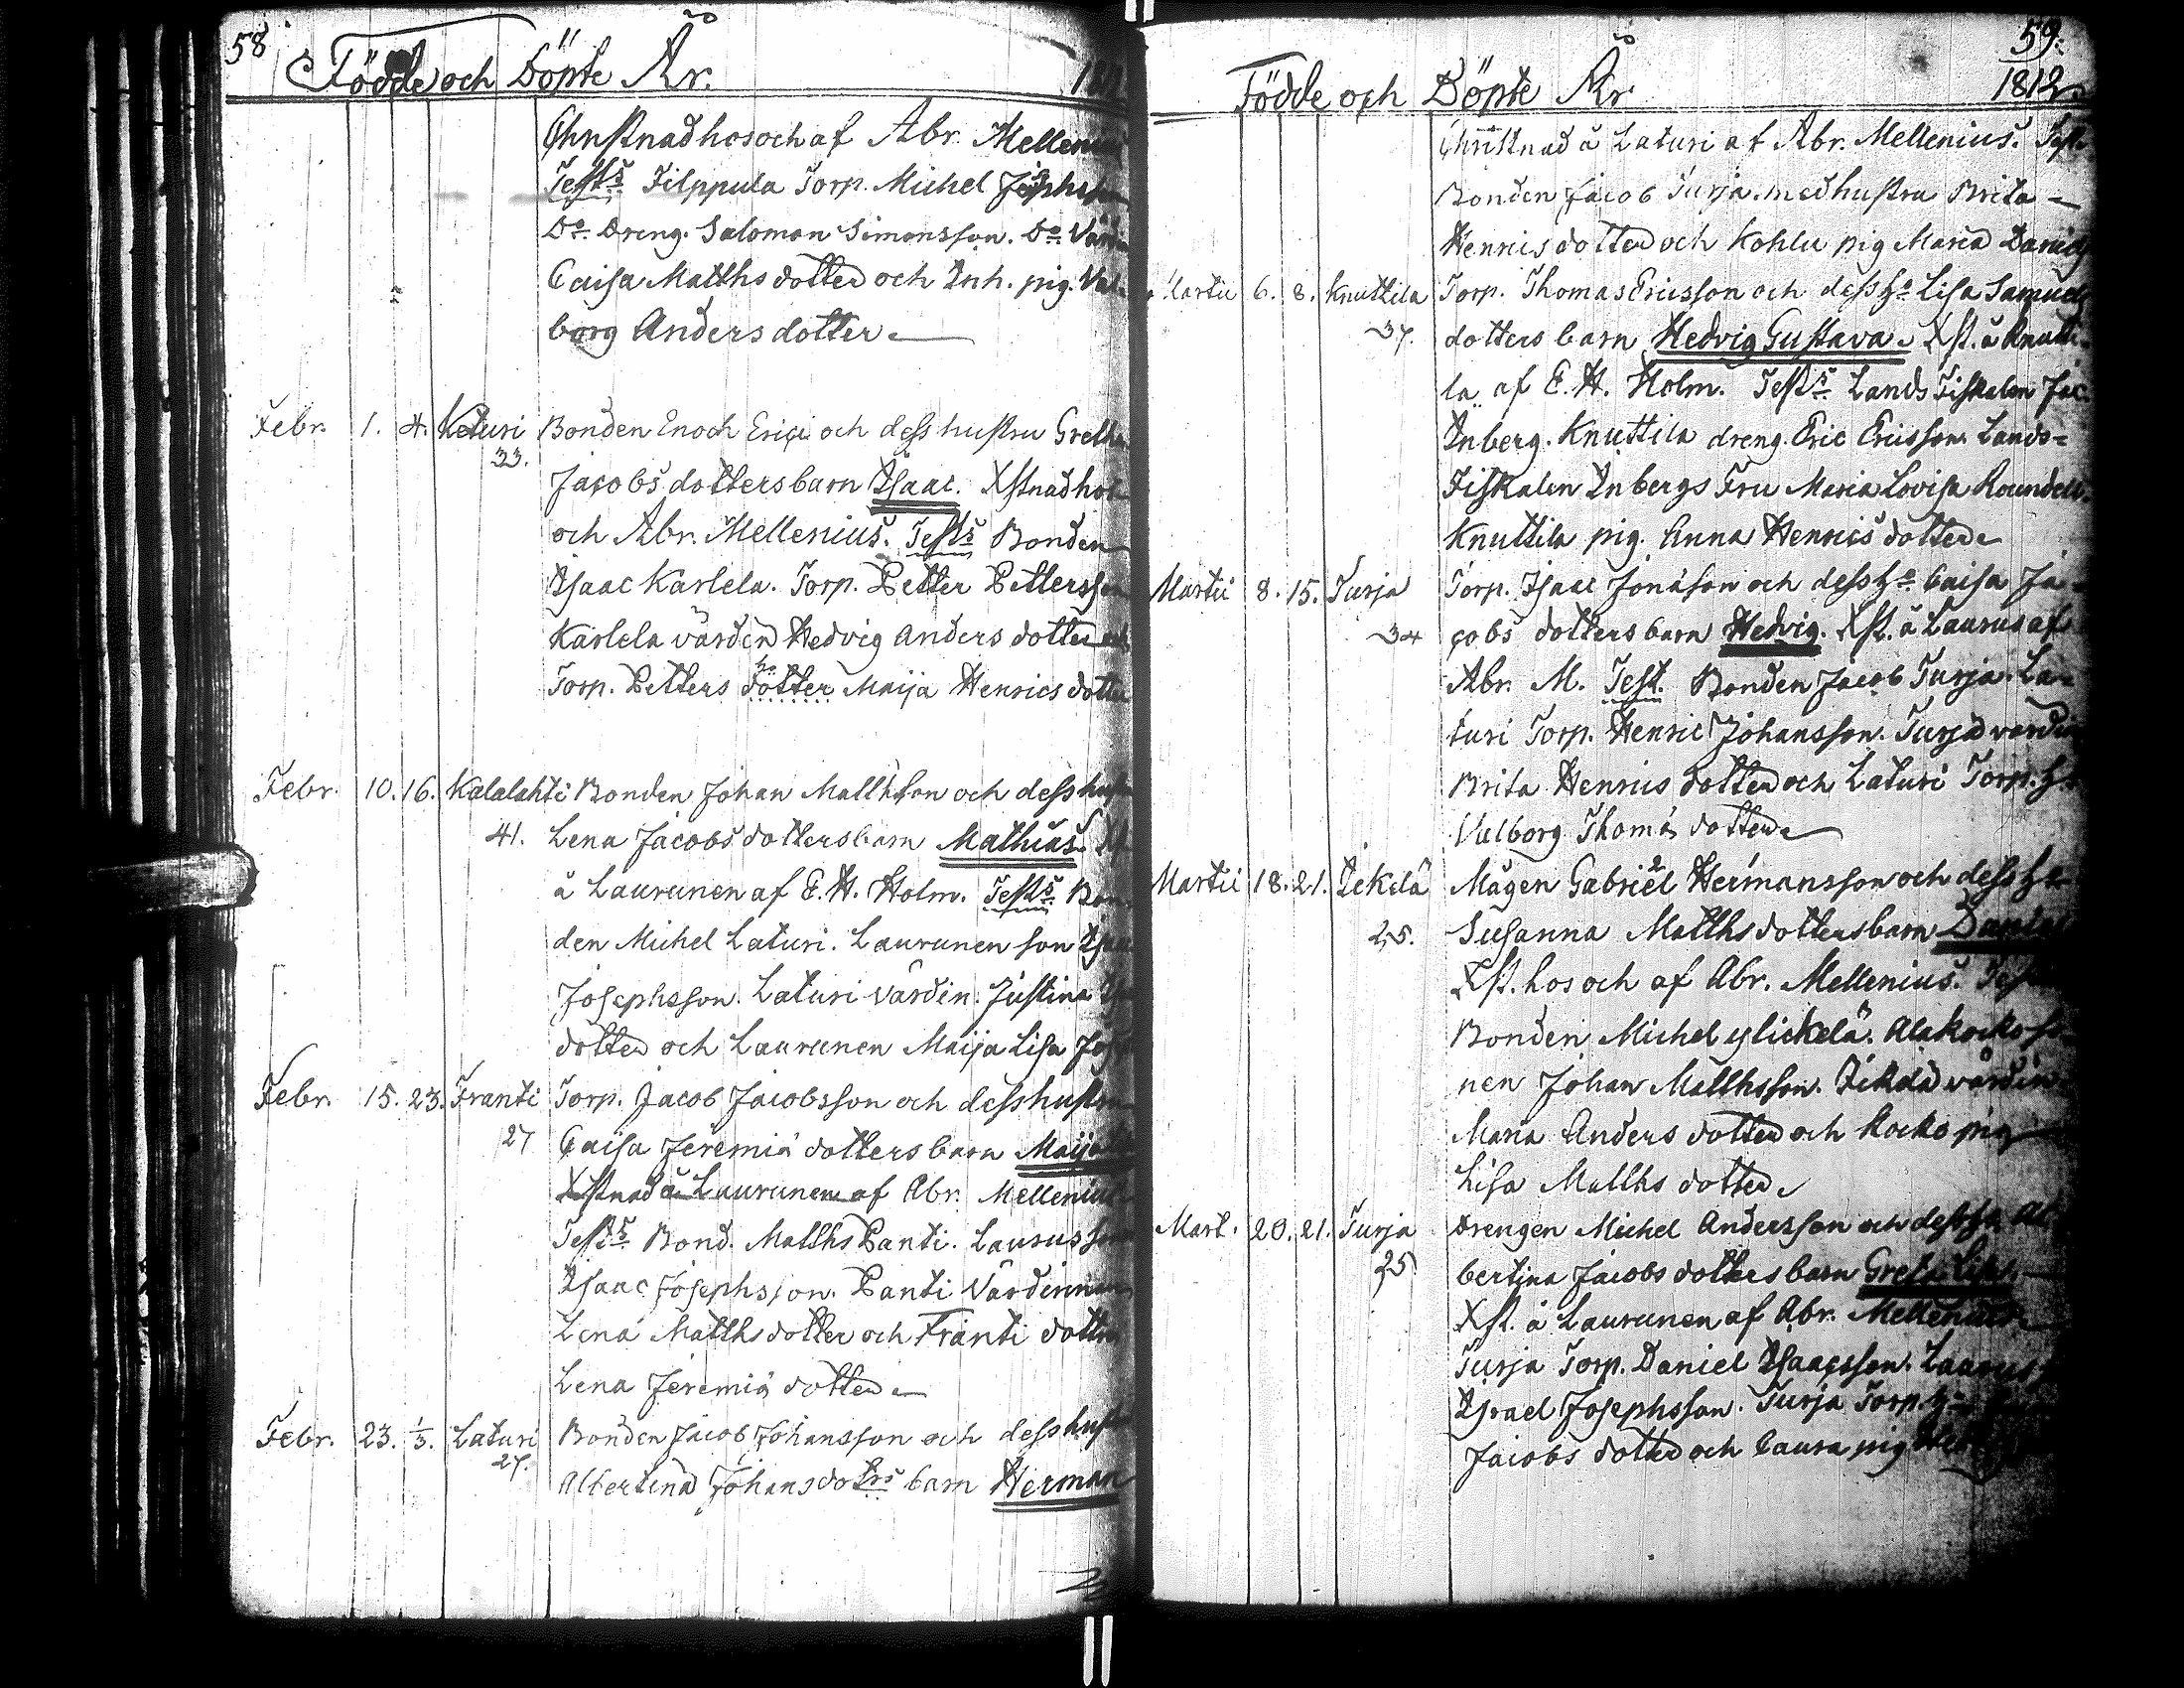 58
Födde och Döpte År.
Christnad hos och af Abr. Mellenius
Test:s Filppula Torp. Michel Josephsson
Do. Dreng. Salomon Simonsson. Do. Värdin
Caisa Matths dotter och Inh. pig. Val-
borg Anders dotter
Febr. 1. 4. Keturi Bonden Enoch Erici och dess hustru Gretha
33.
Jacobs dotters barn Isaac. Xstnad hos
och Abr. Mellenius. Test:s Bonden
Isaac Karlela. Torp. Petter Pettersson
Karlela värdin Hedvig Anders dotter och
Torp. Petters dotter Maija Henrics dotter
Febr. 10. 16. Kalalahti Bonden Johan Matthsson och dess hustru
41. Lena Jacobs dotters barn Mathias. Xst.
å Laurunen af E. H. Holm. Test:s Bon-
den Michel Laturi. Laurunen son Isaac
Josephsson. Laturi värdin. Justina
dotter och Laurunen Maija Lisa
Febr. 15. 23. Franti Torp. Jacob Jacobsson och dess hustru
27 Caisa Jeremiæ dotters barn Maija
Xstnad å Laurunen af Abr. Mellenius
Test:s Bond. Matths Panti. Laurus son
Isaac Josephsson. Panti Värdinnan
Lena Matths dotter och Franti dotter
Lena Jeremiæ dotter
Febr. 23. 1/3. Laturi Bonden Jacob Johansson och dess hustru
27.
Albertina Johans dotrs barn Herman
59.
Födde och Döpte År. 1812.
Christnad å Laturi af Abr. Mellenius. Test.
Bonden Jacob Turja. med hustru Brita
Henrics dotter och Kohlu pig Maria Daniels
Martii 6. 8. Knuttila Torp. Thomas Ericsson och dess h:o Lisa Samuels
37. dotters barn Hedvig Gustava. Xst. å Knutti-
la af E. H. Holm. Test:s Lands Fiskalen Jac.
Inberg. Knuttila dreng. Eric Ericsson. Lands-
Fiskalen Inbergs Fru Maria Lovisa Roundell.
Knuttila pig. Anna Henrics dotter
Martii 8. 15. Turja Torp. Isaac Jonasson och dess h:o Caisa Ja-
34 cobs dotters barn Hedvig. Xst. å Laurus af
Abr. M. Test. Bonden Jacob Turja. La-
turi Torp. Henric Johansson. Turja värdin
Brita Henrics dotter och Laturi Torp. h:o
Valborg Thomæ dotter
Martii 18. 21. Ickelä Mågen Gabriel Hermansson och dess h:o
25. Susanna Matths dotters barn Daniel
Xst. hos och af Abr. Mellenius. Test
Bonden Michel ylickelä. Alakocko so-
nen Johan Matthsson. Ickelä värdin
Maria Anders dotter och Kocko pig
Lisa Matths dotter
Mart. 20. 21. Turja Drengen Michel Andersson och dess h:o Al-
25 bertina Jacobs dotters barn Greta Lisa
Xst. å Laurunen af Abr. Mellenius
Turja Torp. Daniel Isaacsson. Laurus
Israel Josephsson. Turja Torp. h:o
Jacobs dotter och Laura pig